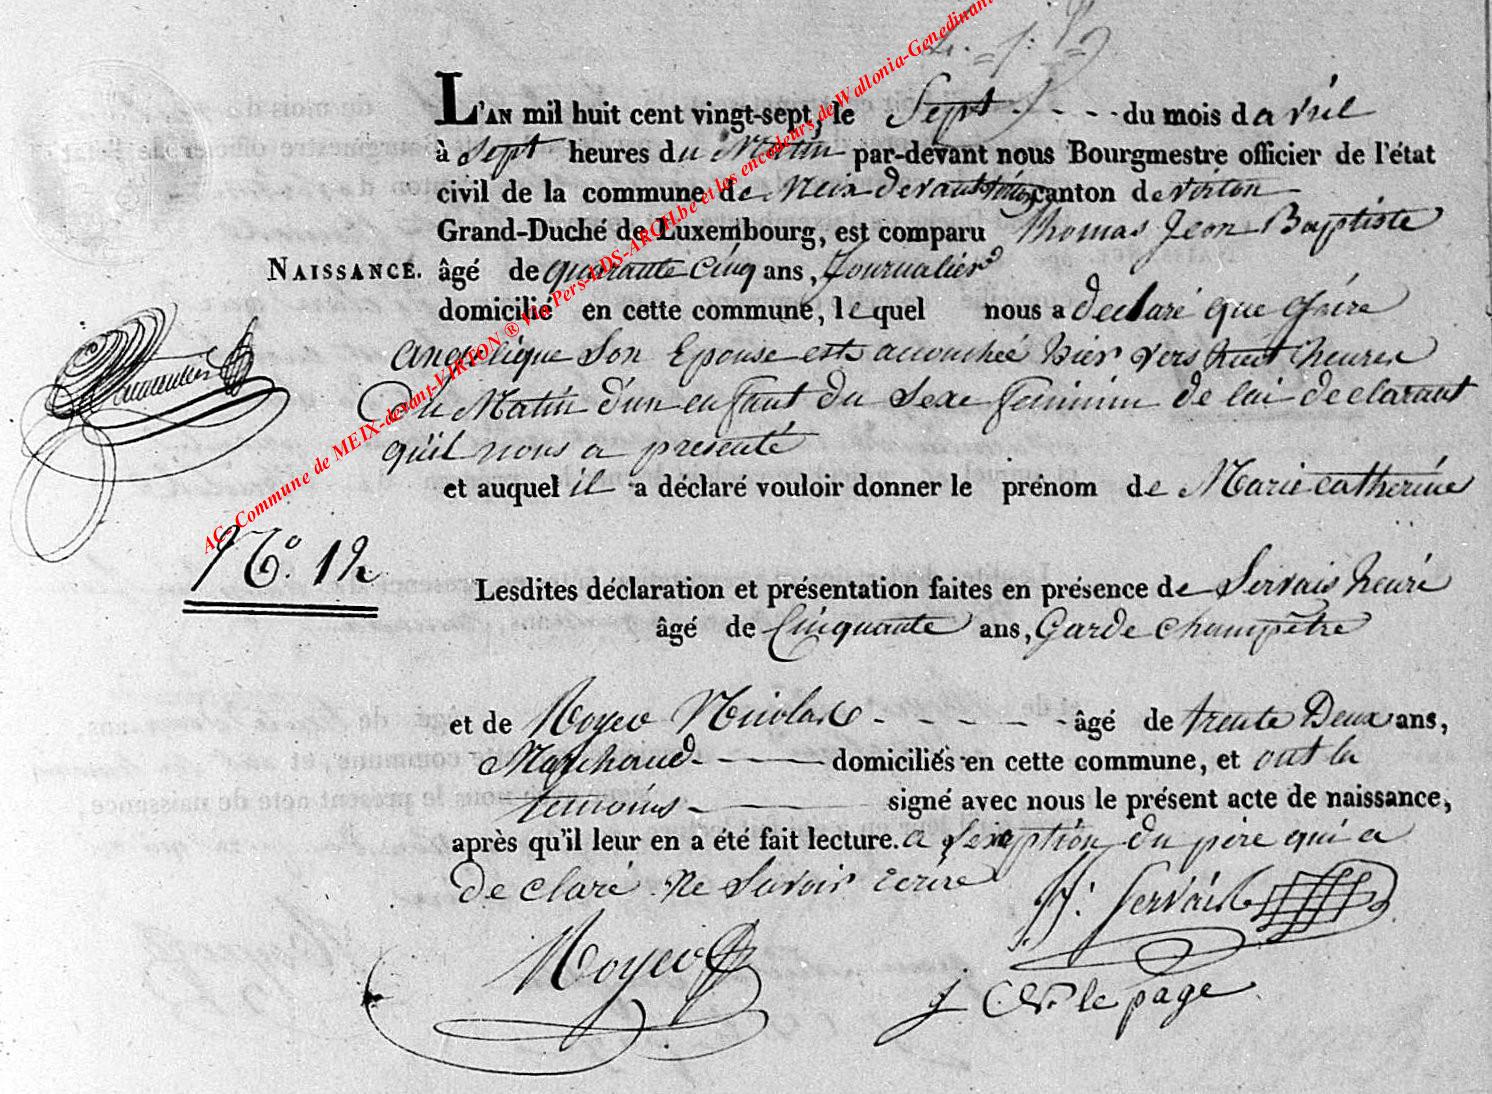 L'AN mil huit cent vingt-sept, le Sept - - - du mois d avril
à Sept heures du Matin par-devant nous Bourgmestre officier de l'état
civil de la commune de Meix devant virton canton de virton
Grand-Duché de Luxembourg, est comparu Thomas Jean Baptiste
NAISSANCE. âgé de quarante cinq ans, Journalier
domicilié en cette commune, lequel nous a declaré que
angelique Son Epouse est accouchée hier vers huit heures
Du Matin d'un enfant du Sexe feminin de lui declarant
qu'il nous a presenté
et auquel il a déclaré vouloir donner le prénom de Marie catherine
N.° 12
Lesdites déclaration et présentation faites en présence de Servais henri
âgé de Cinquante ans, Garde champêtre
et de Noyer Nicolas - - - - - - âgé de trente Deux ans,
Marchand - - - domiciliés en cette commune, et ont les
temoins - signé avec nous le présent acte de naissance,
après qu'il leur en a été fait lecture. a l'exeption du père qui a
declaré ne Savoir ecrire
H: Servais
Noyer
le page
AC- Commune de MEIX-devant-VIRTON ® Via Pers-LDS-ARCH.be et les encodeurs de Wallonia-Genedinant